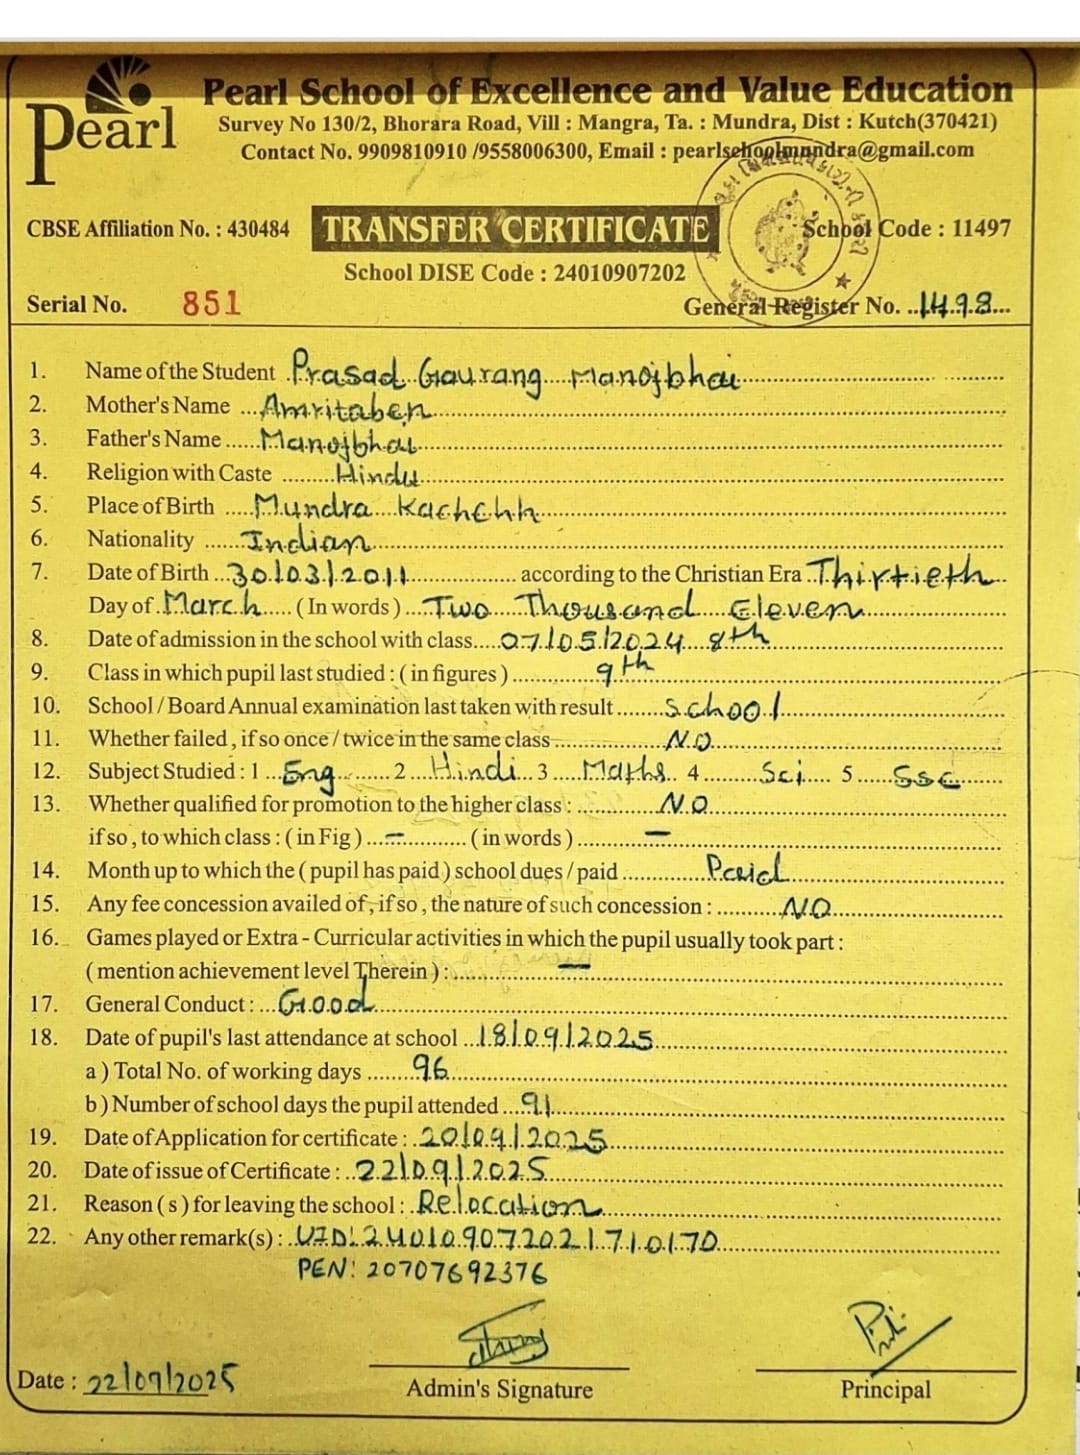 Pearl
Pearl School of Excellence and Value Education
Survey No 130/2, Bhorara Road, Vill : Mangra, Ta. : Mundra, Dist : Kutch(370421)
Contact No. 9909810910 /9558006300, Email : pearlschoolmundra@gmail.com
CBSE Affiliation No. : 430484 TRANSFER CERTIFICATE School Code : 11497
School DISE Code : 24010907202
Serial No. 851 General Register No. 1498
1. Name of the Student Prasad Gaurang Manojbhai
2. Mother's Name Amritaben
3. Father's Name Manojbhai
4. Religion with Caste Hindu
5. Place of Birth Mundra Kachchh
6. Nationality Indian
7. Date of Birth 30/03/2011 according to the Christian Era Thirtieth
Day of March (In words) Two Thousand Eleven
8. Date of admission in the school with class 07/05/2024 8th
9. Class in which pupil last studied : ( in figures ) 9th
10. School / Board Annual examination last taken with result School
11. Whether failed , if so once / twice in the same class NO
12. Subject Studied : 1 Eng 2 Hindi 3 Maths 4 Sci 5 SSC
13. Whether qualified for promotion to the higher class : NO
if so , to which class : ( in Fig ) – ( in words ) –
14. Month up to which the ( pupil has paid ) school dues / paid Paid
15. Any fee concession availed of , if so , the nature of such concession : NO
16. Games played or Extra - Curricular activities in which the pupil usually took part :
( mention achievement level Therein ) : –
17. General Conduct : Good
18. Date of pupil's last attendance at school 18/09/2025
a ) Total No. of working days 96
b ) Number of school days the pupil attended 91
19. Date of Application for certificate : 20/09/2025
20. Date of issue of Certificate : 22/09/2025
21. Reason ( s ) for leaving the school : Relocation
22. Any other remark(s) : UID: 240109072021710170
PEN: 20707692376
Date : 22/09/2025 Admin's Signature Principal